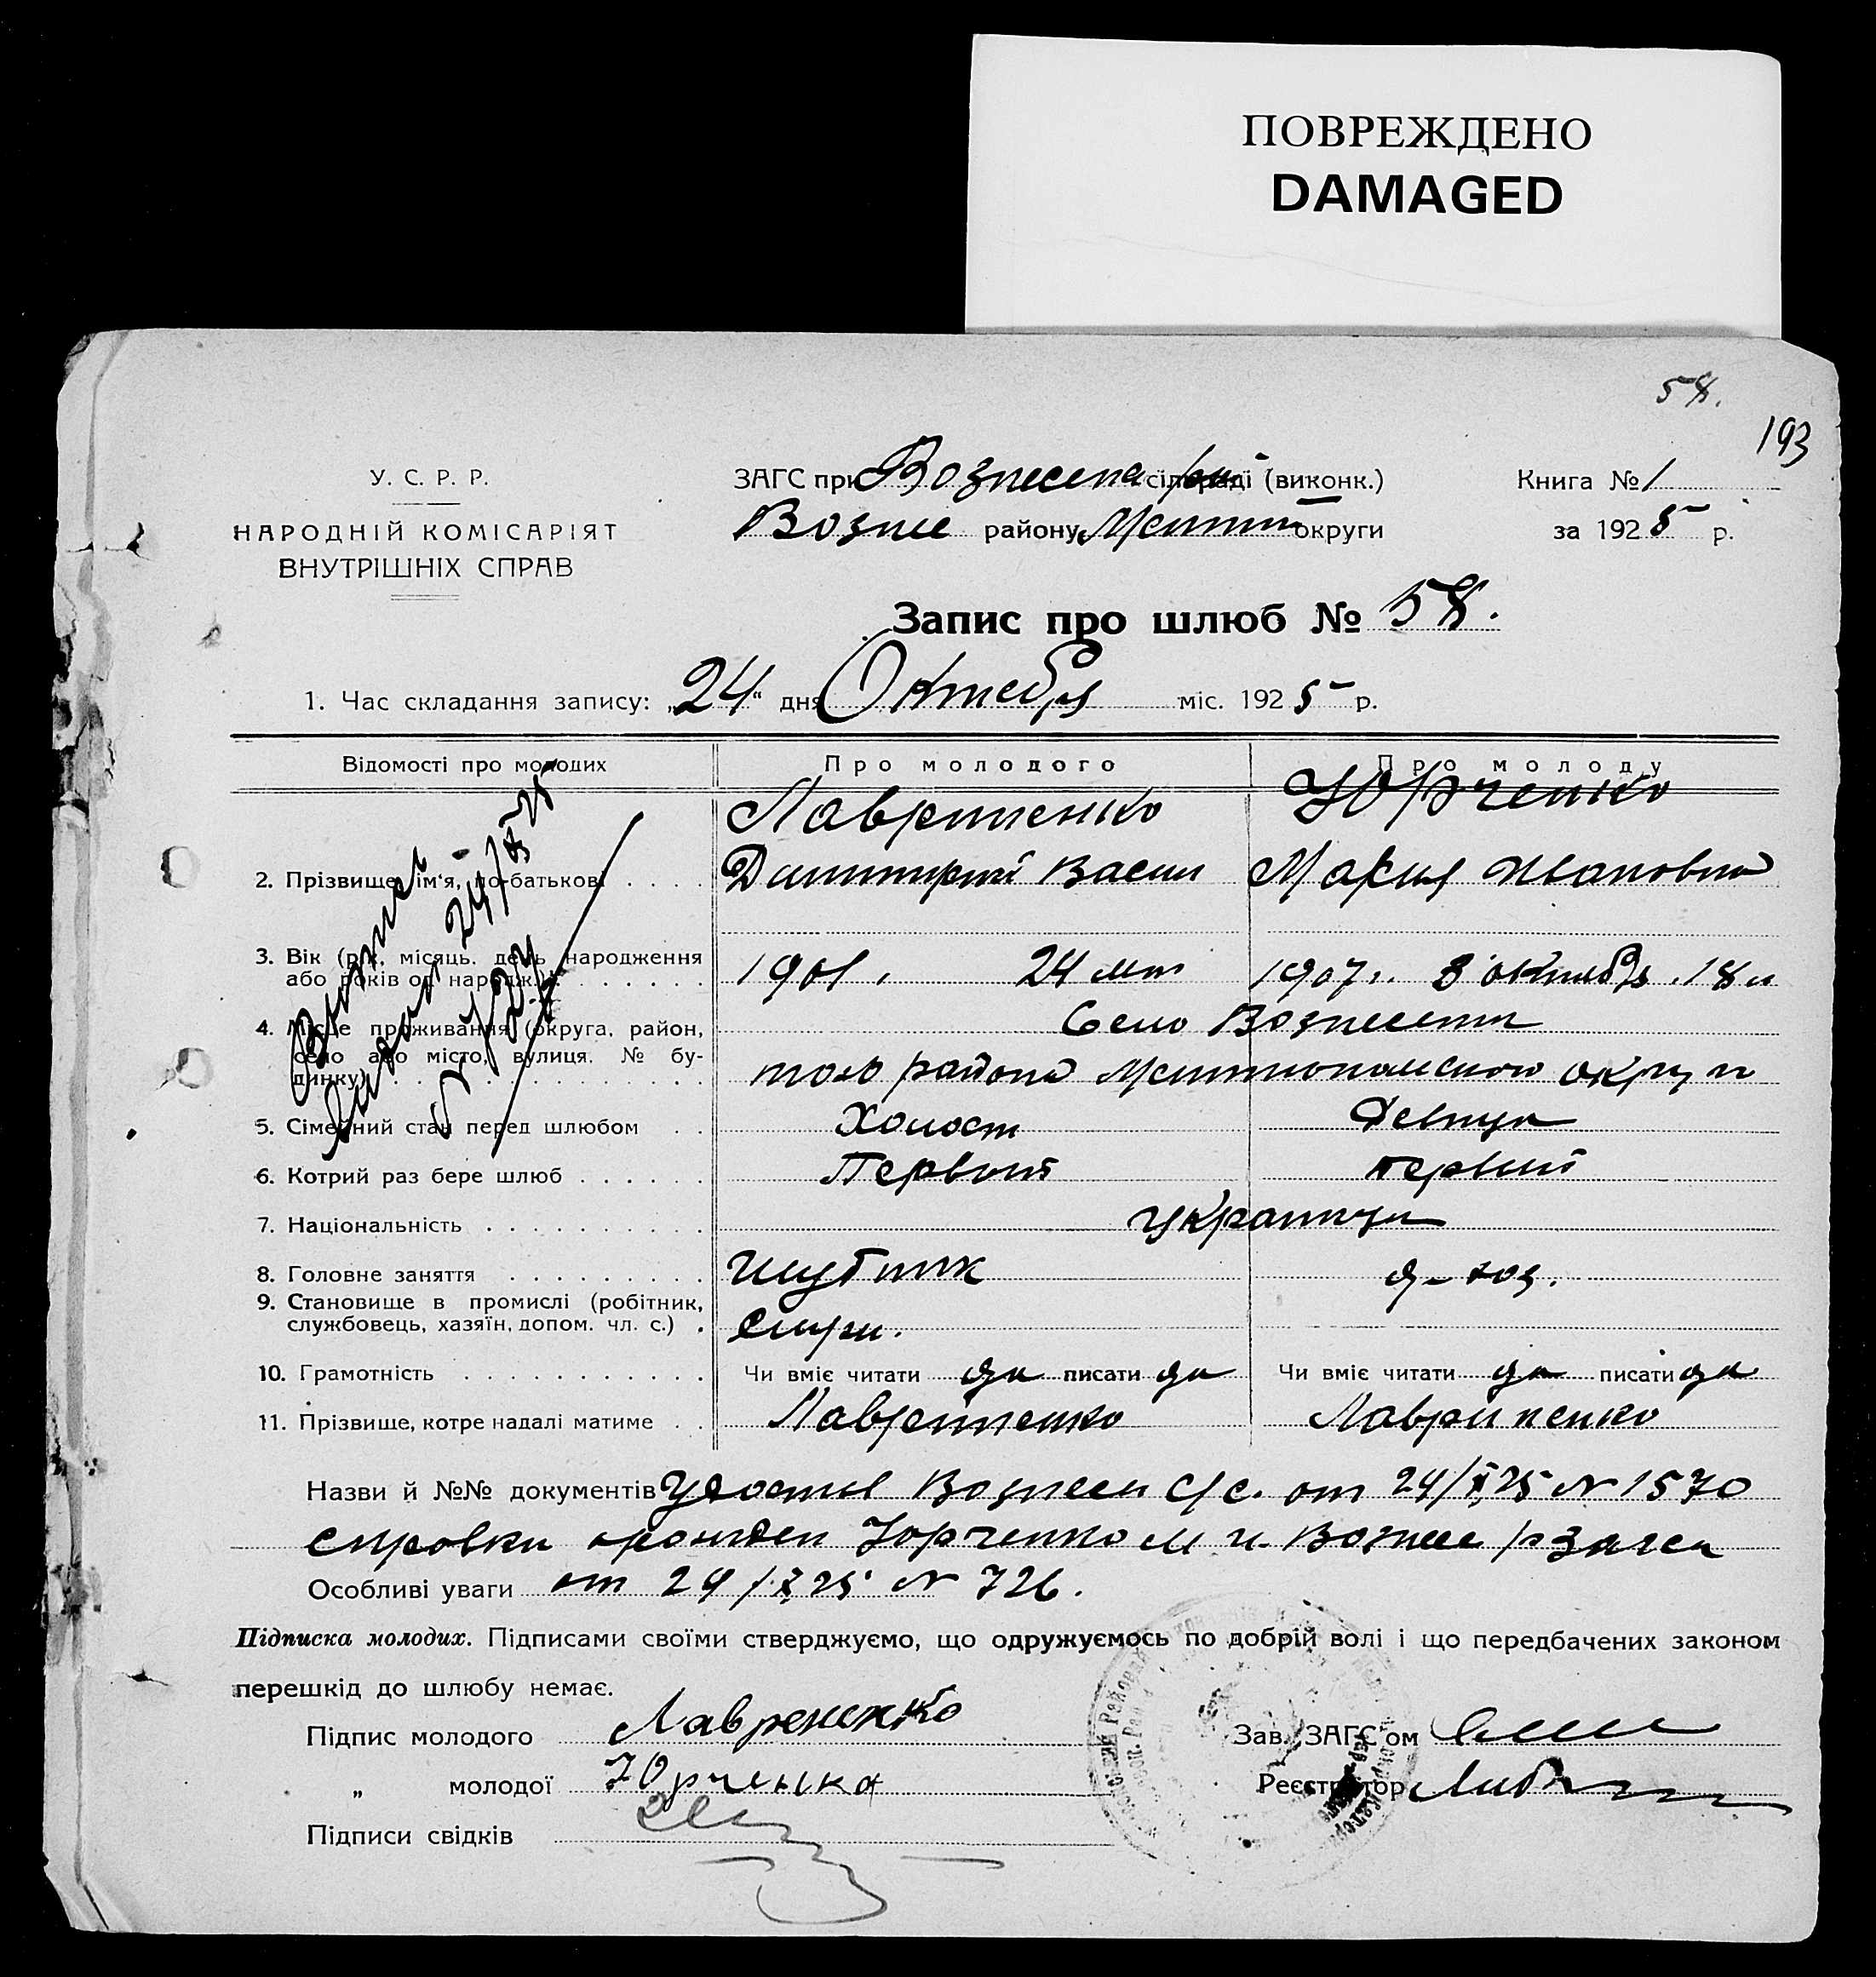 ПОВРЕЖДЕНО
DAMAGED
58.
193
У. С. Р. Р.
НАРОДНІЙ КОМІСАРІЯТ
ВНУТРІШНІХ СПРАВ
ЗАГС при Вознесена сільраді (виконк.)
Вознес району Мелит округи
Книга № 1
за 1925 р.
Запис про шлюб № 58.
1. Час складання запису: „24" дня Октебря міс. 1925 р.
Відомості про молодих
Про молодого
Про молоду
Лавриненко
Юрченко
2. Прізвище, ім'я, по-батькові . . . .
Димитрий Васил
Мария Ивановна
3. Вік (рік, місяць, день народження
або років од народж.) . . . . . .
1901 . 24 лет
1907 г. 8 октебря . 18 л
4. Місце проживання (округа, район,
село або місто, вулиця, № бу-
динку) . . . . . . . . . . . .
Село Вознесен
того района Мелитопольского округи
5. Сімейний стан перед шлюбом . .
Холост
Девица
6. Котрий раз бере шлюб . . . . . .
Первый
первый
7. Національність . . . . . . . . .
украинцы
8. Головне заняття . . . . . . . . .
д-хоз.
9. Становище в промислі (робітник,
службовець, хазяїн, допом. чл. с.) .
служ.
10. Грамотність . . . . . . . . . . .
Чи вміє читати да писати да
Чи вміє читати да писати да
11. Прізвище, котре надалі матиме . .
Лавриненко
Лавриненко
Назви й №№ документів Удостов Вознесен с/с. от 24/X 25 N 1570
справки о рожден Юрченко М И. Вознес р Загса
Особливі уваги от 24/X 25 N 726.
Підписка молодих. Підписами своїми стверджуємо, що одружуємось по добрій волі і що передбачених законом
перешкід до шлюбу немає.
Підпис молодого Лаврененко
„ молодої Юрченка
Підписи свідків
Зав. ЗАГС'ом
Реєстратор